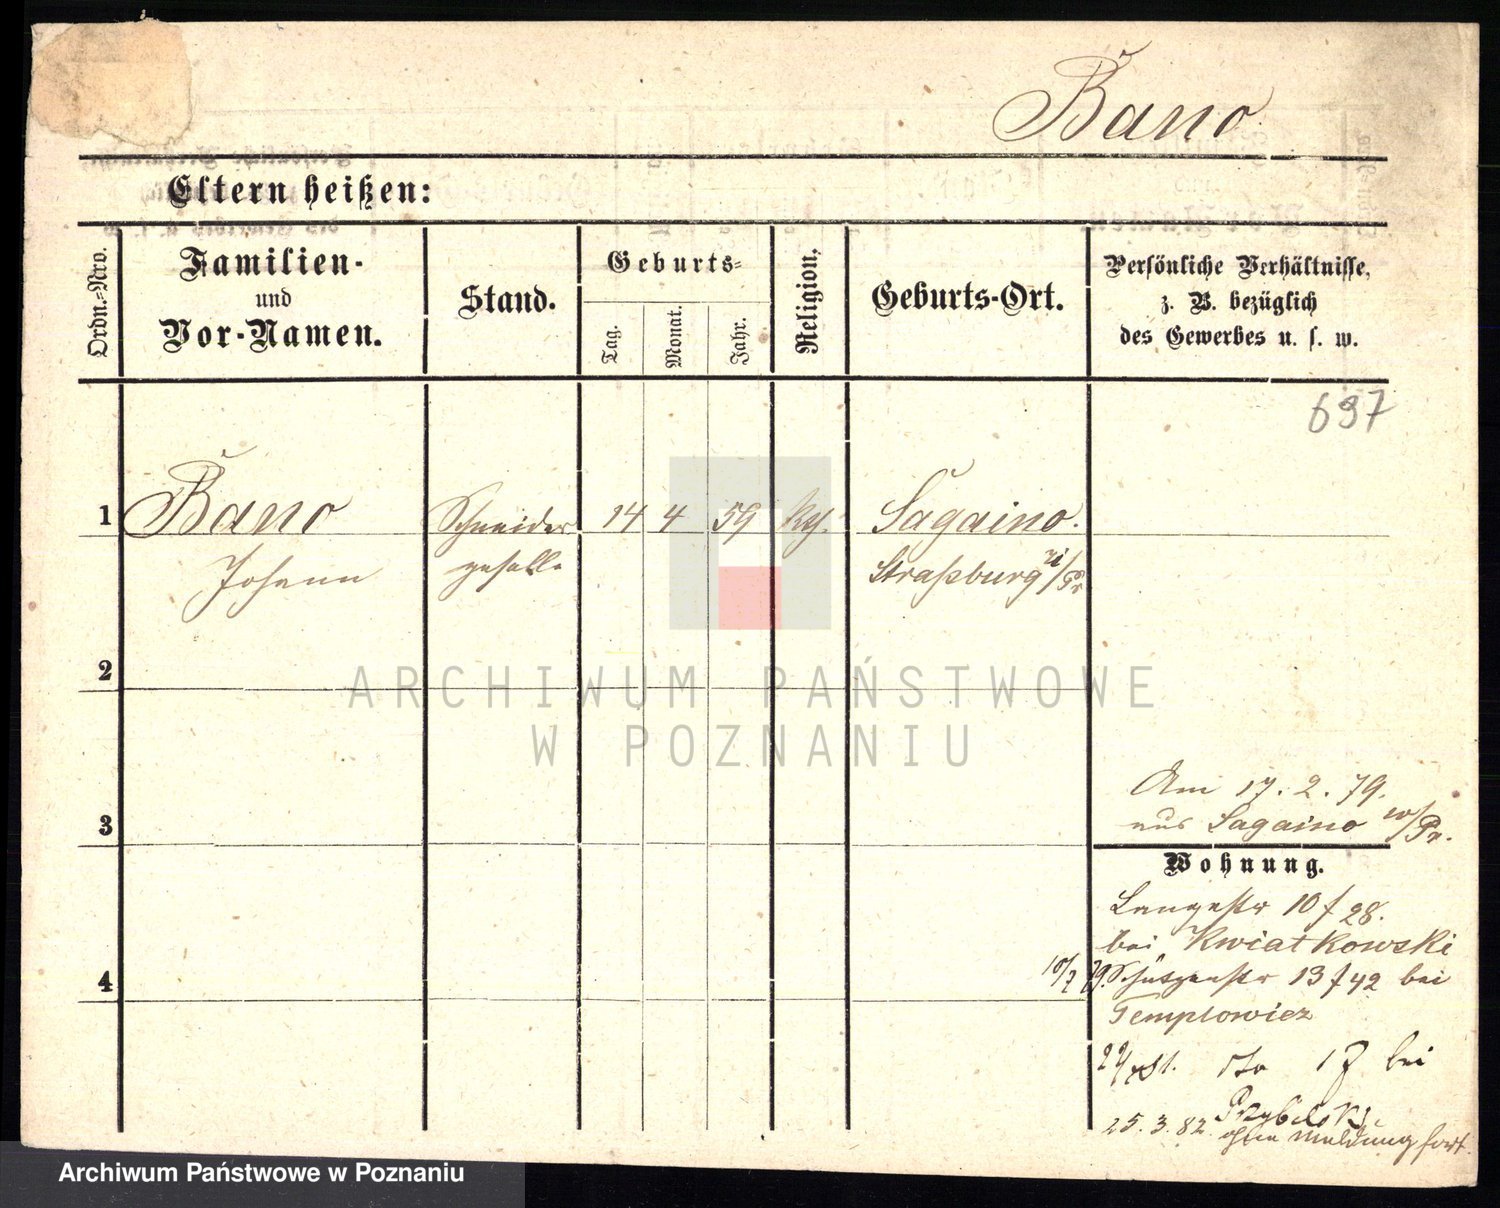 Bano
Eltern heißen:
Ordn.=Nro.
Familien-
und
Vor-Namen.
Stand.
Geburts=
Tag.
Monat.
Jahr.
Religion.
Geburts-Ort.
Persönliche Verhältnisse,
z. B. bezüglich
des Gewerbes u. s. w.
697
1 Bano Schneider 14 4 59 kth. Sagaino.
Johann geselle Straßburg i/Pr
2
3
Am 17. 2. 79.
aus Sagaino w/Pr.
Wohnung.
Langestr 10 f 28.
bei Kwiatkowski
4
10/7 79. Schützenstr 13 f 42 bei
Templowicz
81. dto 17 bei
Przybelski
25. 3. 82. ohne Meldung fort
ARCHIWUM PAŃSTWOWE
W POZNANIU
Archiwum Państwowe w Poznaniu